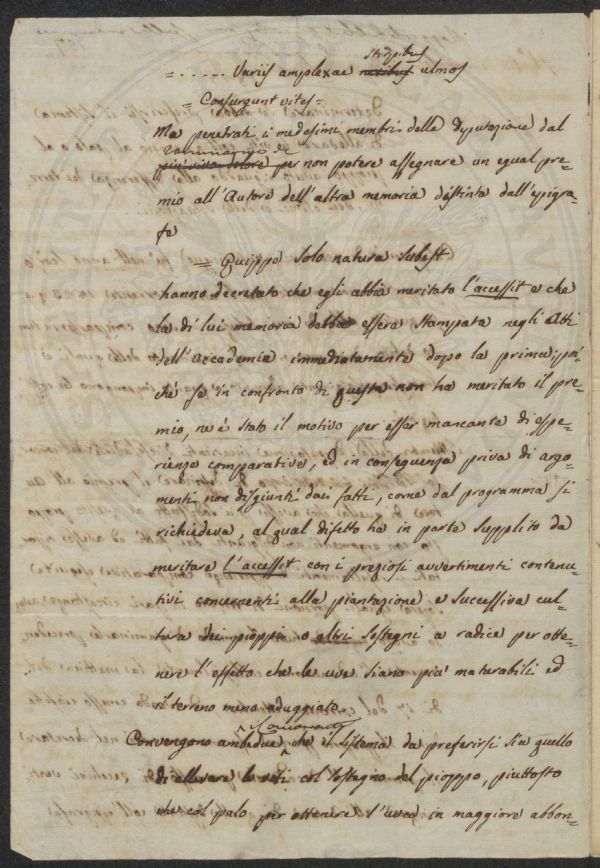 stipitibus
=..... Variis amplexae nexibus ulmos
= Consurgunt vites =
Ma penetrati i medesimi membri della Deputazione dal
rammarico di
più vivo dolore per non potere assegnare un egual pre=
mio all'Autore dell'altra memoria distinta dall'epigra=
fe
= Quippe solo natura subest
hanno decretato che egli abbia meritato l'accessit e che
la di lui memoria debba essere stampata negli Atti
dell'Accademia immediatamente dopo la prima; poi=
chè se in confronto di questa non ha meritato il pre=
mio, ne è stato il motivo per esser mancante di espe=
rienze comparative, ed in conseguenza priva di argo=
menti non disgiunti dai fatti, come dal programma si
richiedeva, al qual difetto ha in parte supplito da
meritare l'accessit con i preziosi avvertimenti contenu=
tivi concernenti alla piantazione e successiva cul=
tura dei pioppi o altri sostegni a radice per otte=
nere l'effetto che le uve siano più maturabili ed
il terreno meno aduggiato.
Convengono ambedue che il sistema da preferirsi sia quello
di allevare le viti col sostegno del pioppo, piuttosto
che col palo per ottenere l'uva in maggiore abbon=